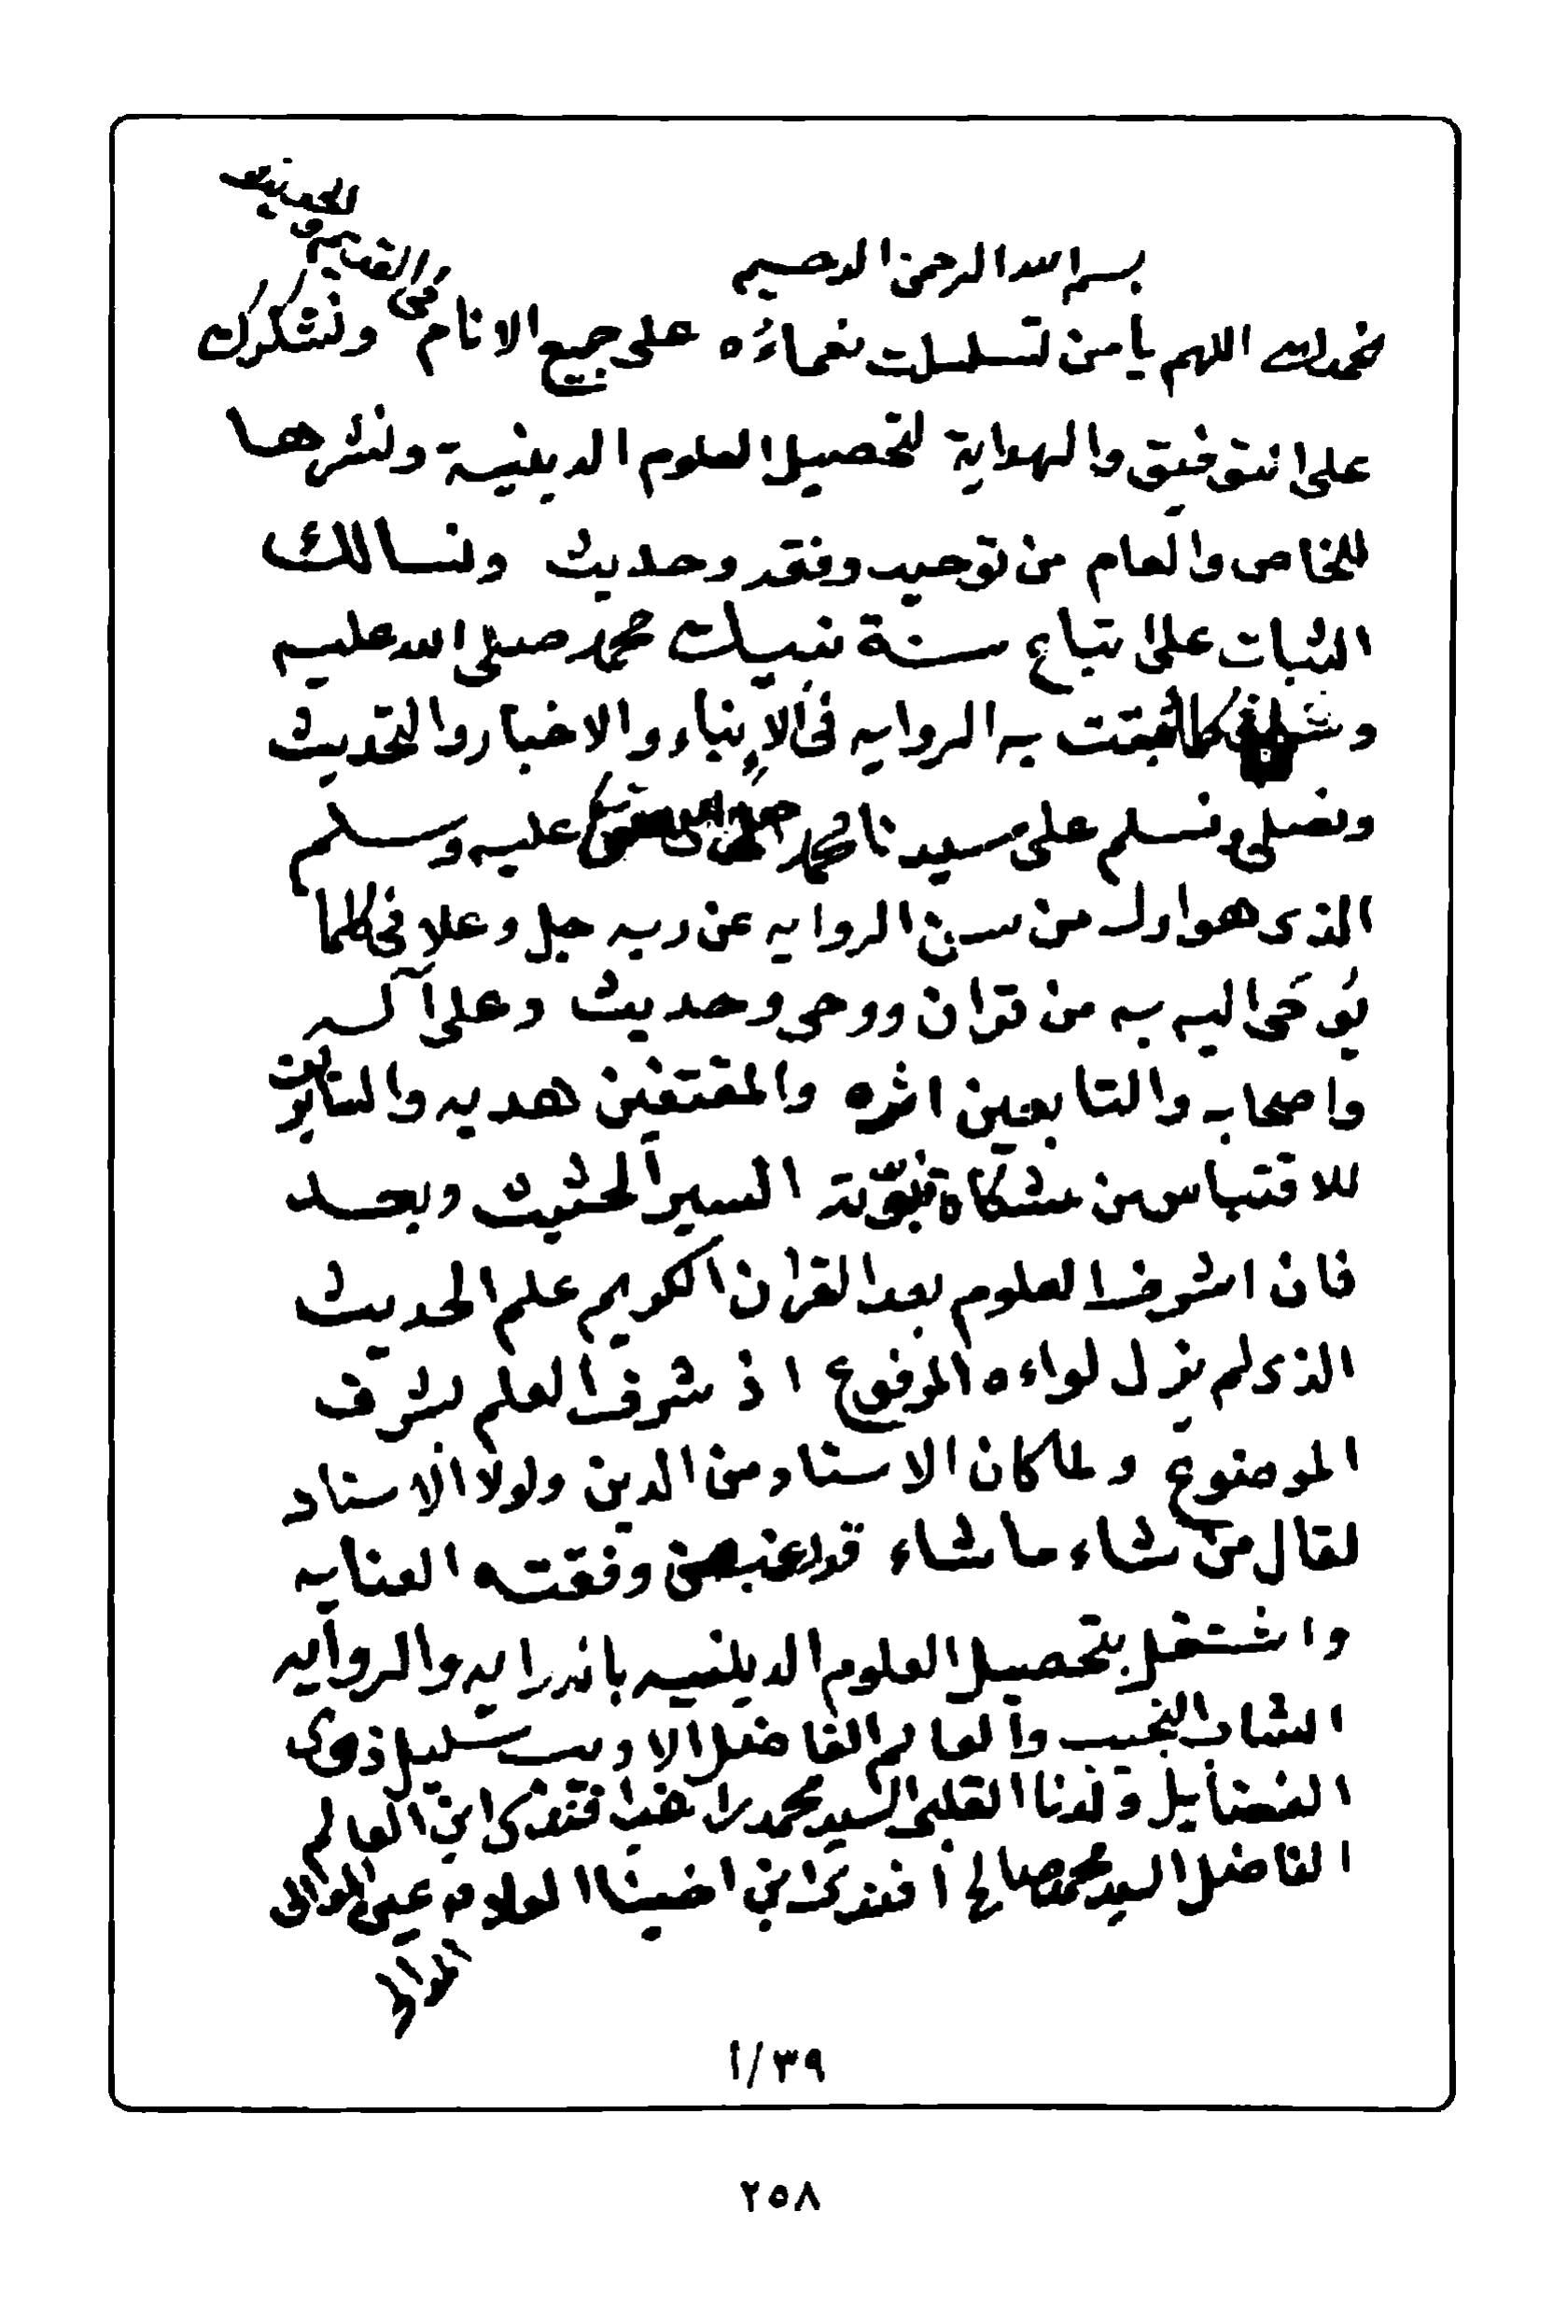 بسم الله الرحمن الرحيم
نحمدك اللهم يا من تسلسلت نعماءه على جميع الانام في القديم والحديث ونشكرك
على التوفيق والهداية لتحصيل العلوم الدينية ونشرها
للخاص والعام من توحيد وفقه وحديث ونسالك
الثبات على اتباع سنة نبيك محمد صلى الله عليه
به الروايه في الانباء والاخبار والتحديث
ونصلي ونسلم على سيدنا محمد عليه وسلم
الذي هو اول من سن الروايه عن ربه جل وعلا في كلما
يُوحَى اليه به من قران ووحي وحديث وعلى آله
واصحابه والتابعين اثره والمقتفين هديه والسائرين
للاقتباس من مشكاة نبوّته السير الحثيث وبعد
فان اشرف العلوم بعد القران الكريم علم الحديث
الذي لم يزل لواءه المرفوع اذ شرف العلم بشرف
الموضوع ولما كان الاسناد من الدين ولولا الاسناد
لقال من شاء ما شاء قد وفقته العنايه
واشتغل بتحصيل العلوم الدينيه بالدرايه والروايه
الشاب النجيب والعالم الفاضل الاديب سليل ذوي
الفضايل ولدنا القلبي السيد محمد راغب افندي ابن العالم
الفاضل السيد محمد صالح افندي ابن اخينا العلامه عبد
١/٣٩
٢٥٨